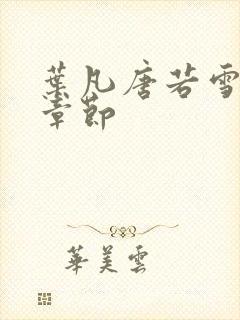 葉凡唐若雪
章節
華美雲